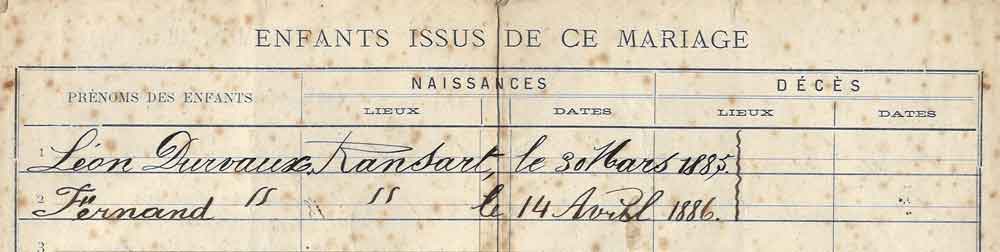 ENFANTS ISSUS DE CE MARIAGE
NAISSANCES DÉCÈS
PRÉNOMS DES ENFANTS
LIEUX DATES LIEUX DATES
1 Léon Durvaux, Ransart, le 30 Mars 1885.
2 Fernand " " le 14 Avril 1886.
3